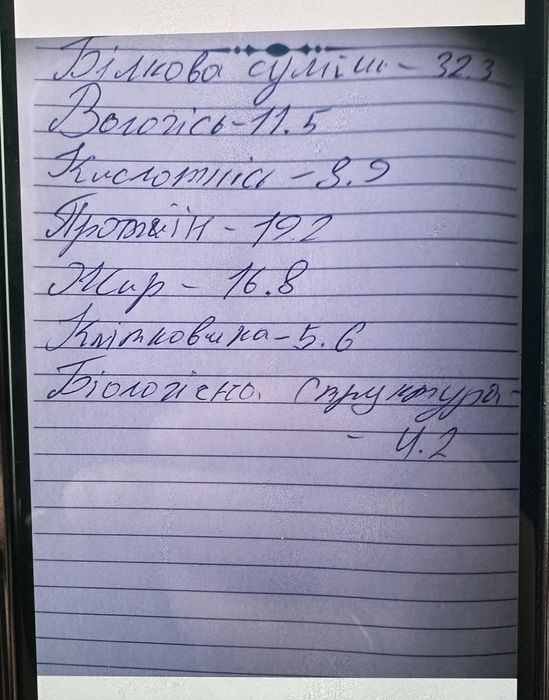 Білкова суміш - 32.3
Вологісь - 11.5
Кислотніс - 8.9
Протеїн - 19.2
Жир - 16.8
Клітковина - 5.6
Біологієна структура -
- 4.2